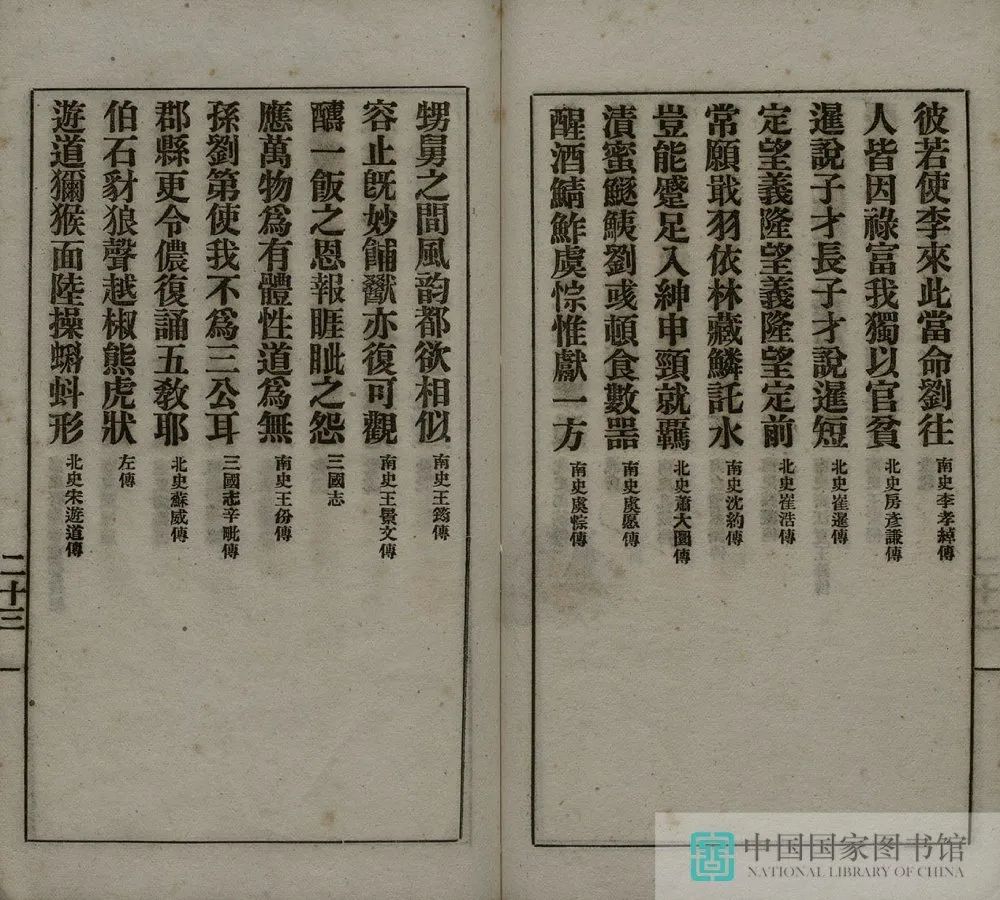 彼若使李來此當命劉往 南史李孝綽傳
人皆因祿富我獨以官貧 北史房彥謙傳
暹說子才長子才說暹短 北史崔暹傳
定望義隆望義隆望定前 北史崔浩傳
常願戢羽依林藏鱗託水 南史沈約傳
豈能蹙足入紳申頸就羈 北史蕭大圜傳
漬蜜鱁鮧劉彧頓食數器 南史虞愿傳
醒酒鯖鮓虞悰惟獻一方 南史虞悰傳
甥舅之間風韵都欲相似 南史王筠傳
容止既妙餔歠亦復可觀 南史王景文傳
醻一飯之恩報睚眦之怨 三國志
應萬物為有體性道為無 南史王份傳
孫劉第使我不為三公耳 三國志辛毗傳
郡縣更令儂復誦五教耶 北史蘇威傳
伯石豺狼聲越椒熊虎狀 左傳
遊道獼猴面陸操蝌蚪形 北史宋遊道傳
二十三
中国国家图书馆
NATIONAL LIBRARY OF CHINA